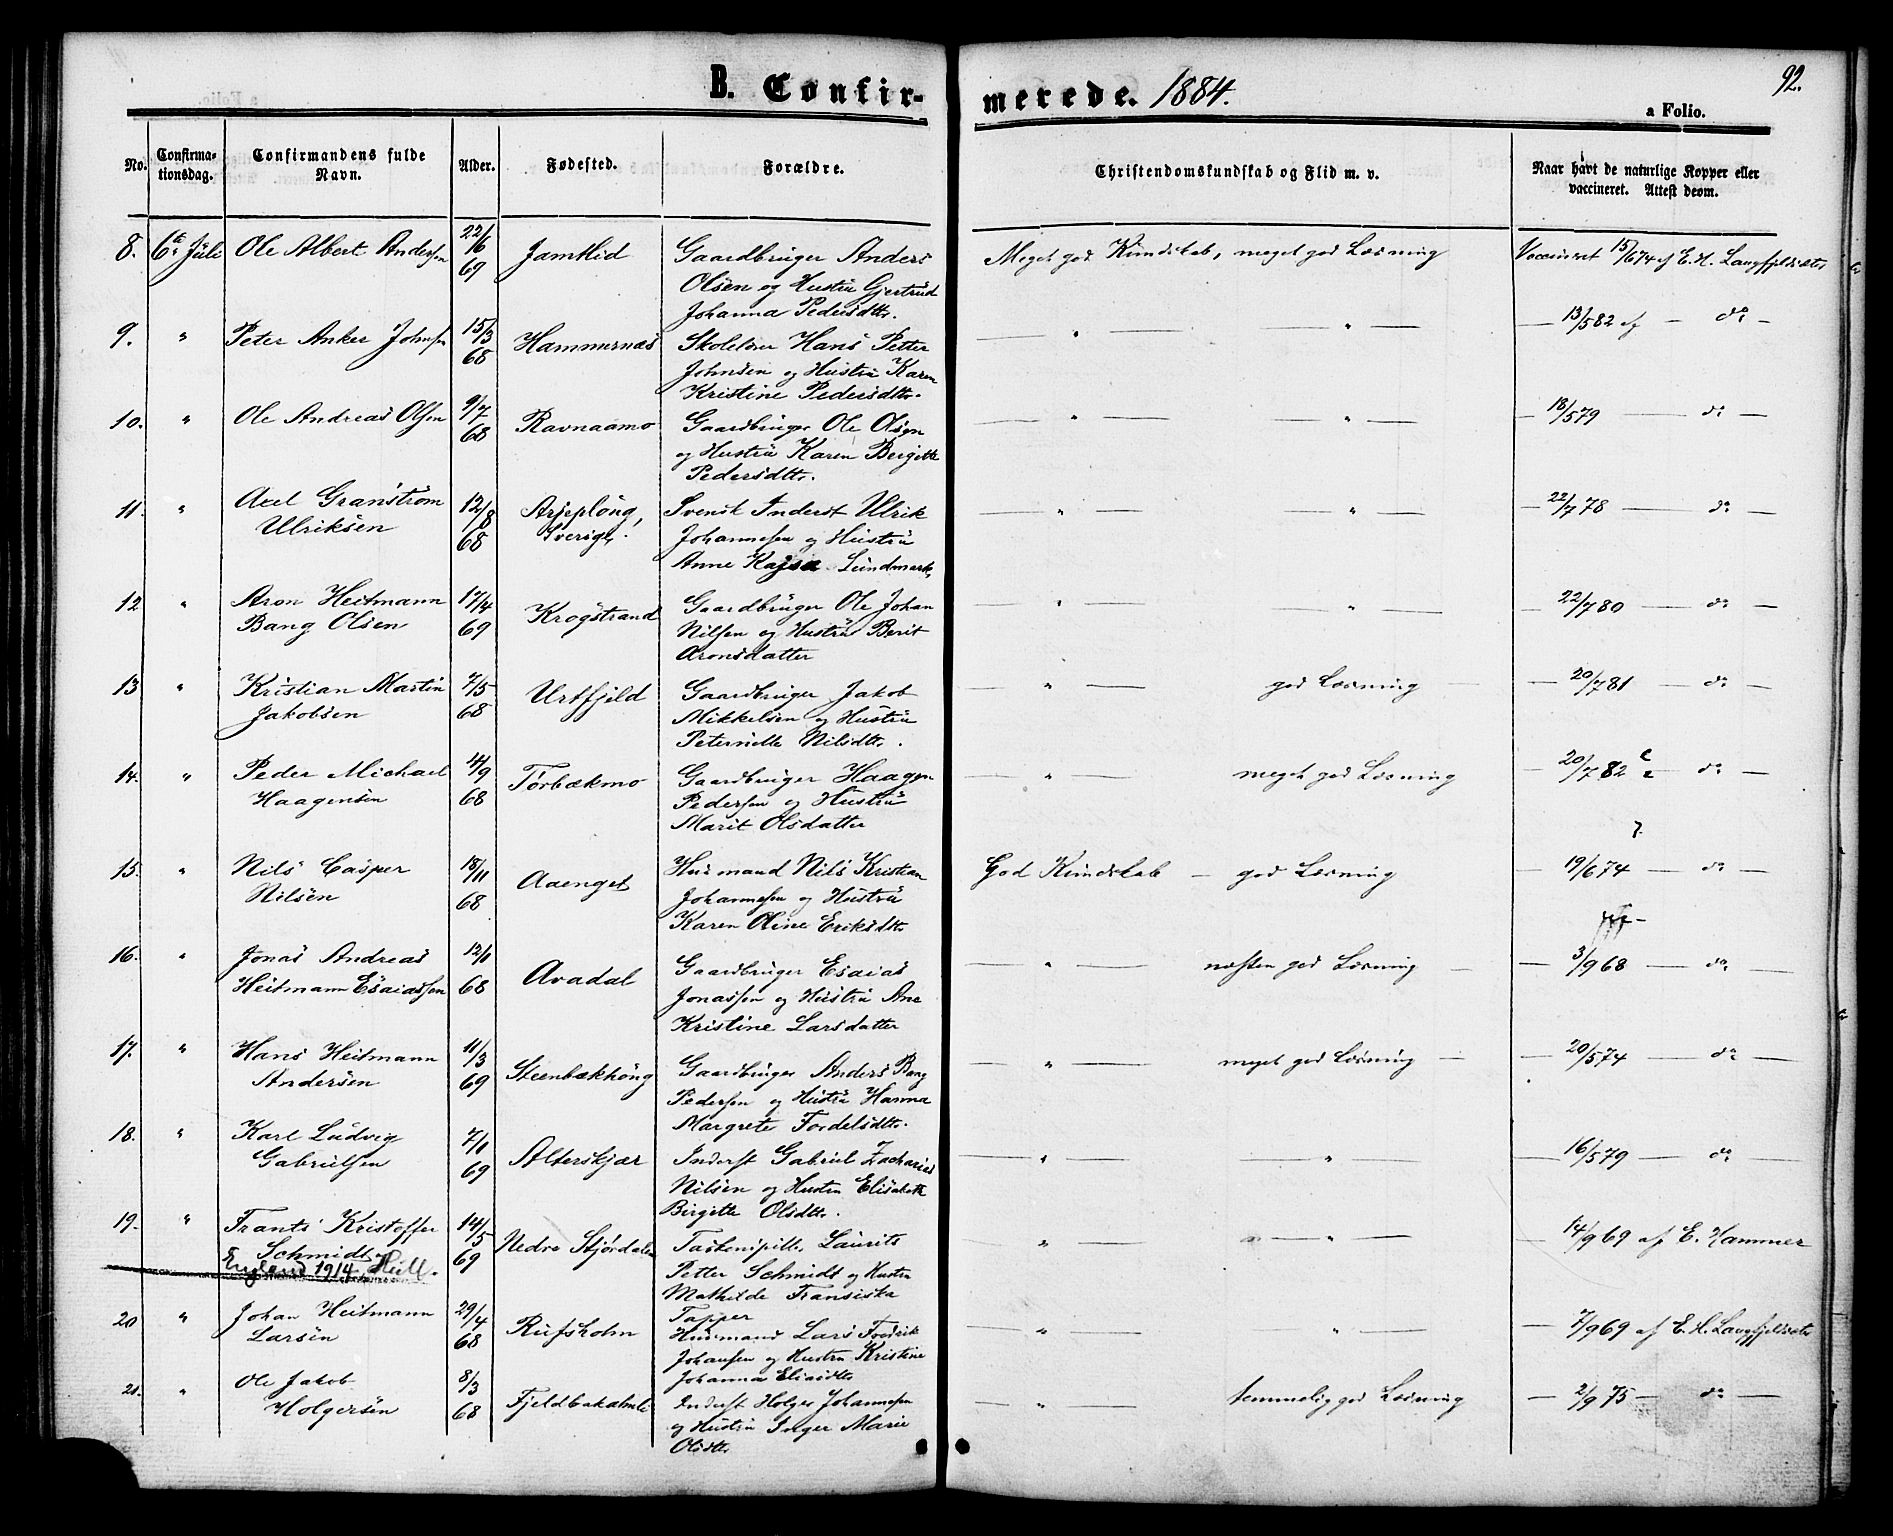 B. Confir-
merede. 1884.
92.
a Folio.
No.
Confirma-
tionsdag.
Confirmandens fulde
Navn.
Alder.
Fødested.
Forældre.
Christendomskundskab og Flid m. v.
Naar havt de naturlige Kopper eller
vaccineret. Attest deom.
8. 6te Juli Ole Albert Andersen 22/6 69 Jamtlid Gaardbruger Anders Meget god Kundskab, meget god Læsning Vaccineret 15/6 74 af E. H. Langfjeldsæter
Olsen og Hustru Gjertrud
Johanna Pedersdtr.
9. " Peter Anker Johnsen 15/3 68 Hammernæs Skolelærer Hans Petter — " — " — — 13/5 82 af — do —
Johnsen og Hustru Karen
Kristine Pedersdtr.
10. " Ole Andreas Olsen 9/7 68 Ravnaamo Gaardbruger Ole Olsen — " — " — — 18/5 79 — do —
og Hustru Karen Birgitte
Pedersdtr.
11. " Axel Granstrøm 12/8 68 Arjeplong, Svensk Inderst Ulrik " — " — — 22/7 78 — do —
Ulriksen Sverige. Johannesen og Hustru
Anne Kajsa Lundmark.
12 " Aron Heitmann 17/4 69 Krogstrand Gaardbruger Ole Johan — " — " — — 22/7 80 — do —
Bang Olsen Nilsen og Hustru Berit
Aronsdatter
13 " Kristian Martin 7/5 68 Urtfjeld Gaardbruger Jakob — " — god Læsning — 20/7 81 — do —
Jakobsen Mikkelsen og Hustru
Peternille Nilsdtr.
14. " Peder Michael 4/9 68 Tørbækmo Gaardbruger Haagen — " — meget god Læsning — 20/7 82 — do —
Haagensen Pedersen og Hustru
Marit Olsdatter
15. " Nils Casper 18/11 68 Aaenget Husmand Nils Kristian God Kundskab — god Læsning — 19/6 74 — do —
Nilsen Johannesen og Hustru
Karen Oline Eriksdtr.
16. " Jonas Andreas 12/11 68 Avadal Gaardbruger Esaias — " — næsten god Læsning — 3/9 68 — do —
Heitmann Esaiassen Jonassen og Hustru Ane
Kristine Larsdatter
17. " Hans Heitmann 11/3 69 Steenbækhøug Gaardbruger Anders Bang — " — meget god Læsning — 20/5 74 — do —
Andersen Pedersen og Hustru Hanna
Margrete Fordelsdtr.
18. " Karl Ludvig 7/1 69 Alterskjær Inderst Gabriel Zacharias — " — " — 16/5 79 — do —
Gabrielsen Nilsen og Hustru Elisabeth
Birgitte Olsdtr.
19. " Frants Kristoffer 14/5 69 Nedre Stjørdalen Laurits — " — " — 14/9 69 af E. Hammer
Schmidt Petter Schmidt og Hustru
England 1914 Hull. Mathilde Fransiska
Tapper
20 " Johan Heitmann 29/4 68 Rufsholm Husmand Lars Fredrik — " — " — — 7/9 69 af E. H. Langfjeldsæter
Larsen Johansen og Hustru Kristine
Johanna Eliasdtr.
21. " Ole Jakob 8/3 68 Inderst Holger Johannesen — " — temmelig god Læsning — 2/9 75 — do —
Holgersen og Hustru Inger Marie
Olsdtr.